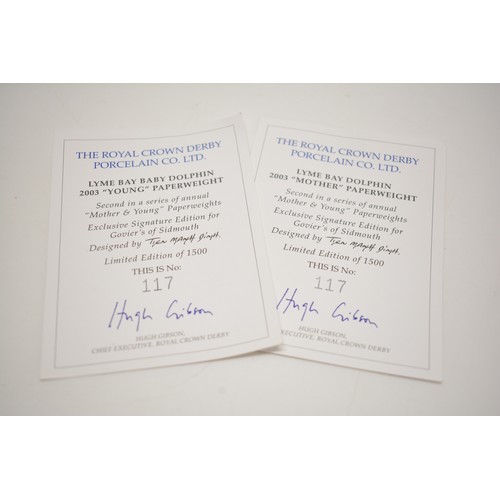 THE ROYAL CROWN DERBY
PORCELAIN CO. LTD.
LYME BAY BABY DOLPHIN
2003 "YOUNG" PAPERWEIGHT
Second in a series of annual
"Mother & Young" Paperweights
Exclusive Signature Edition for
Govier's of Sidmouth
Designed by
Limited Edition of 1500
THIS IS No:
117
Hugh Gibson
HUGH GIBSON,
CHIEF EXECUTIVE, ROYAL CROWN DERBY
THE ROYAL CROWN DERBY
PORCELAIN CO. LTD.
LYME BAY DOLPHIN
2003 "MOTHER" PAPERWEIGHT
Second in a series of annual
"Mother & Young" Paperweights
Exclusive Signature Edition for
Govier's of Sidmouth
Designed by
Limited Edition of 1500
THIS IS No:
117
Hugh Gibson
HUGH GIBSON,
EXECUTIVE, ROYAL CROWN DERBY